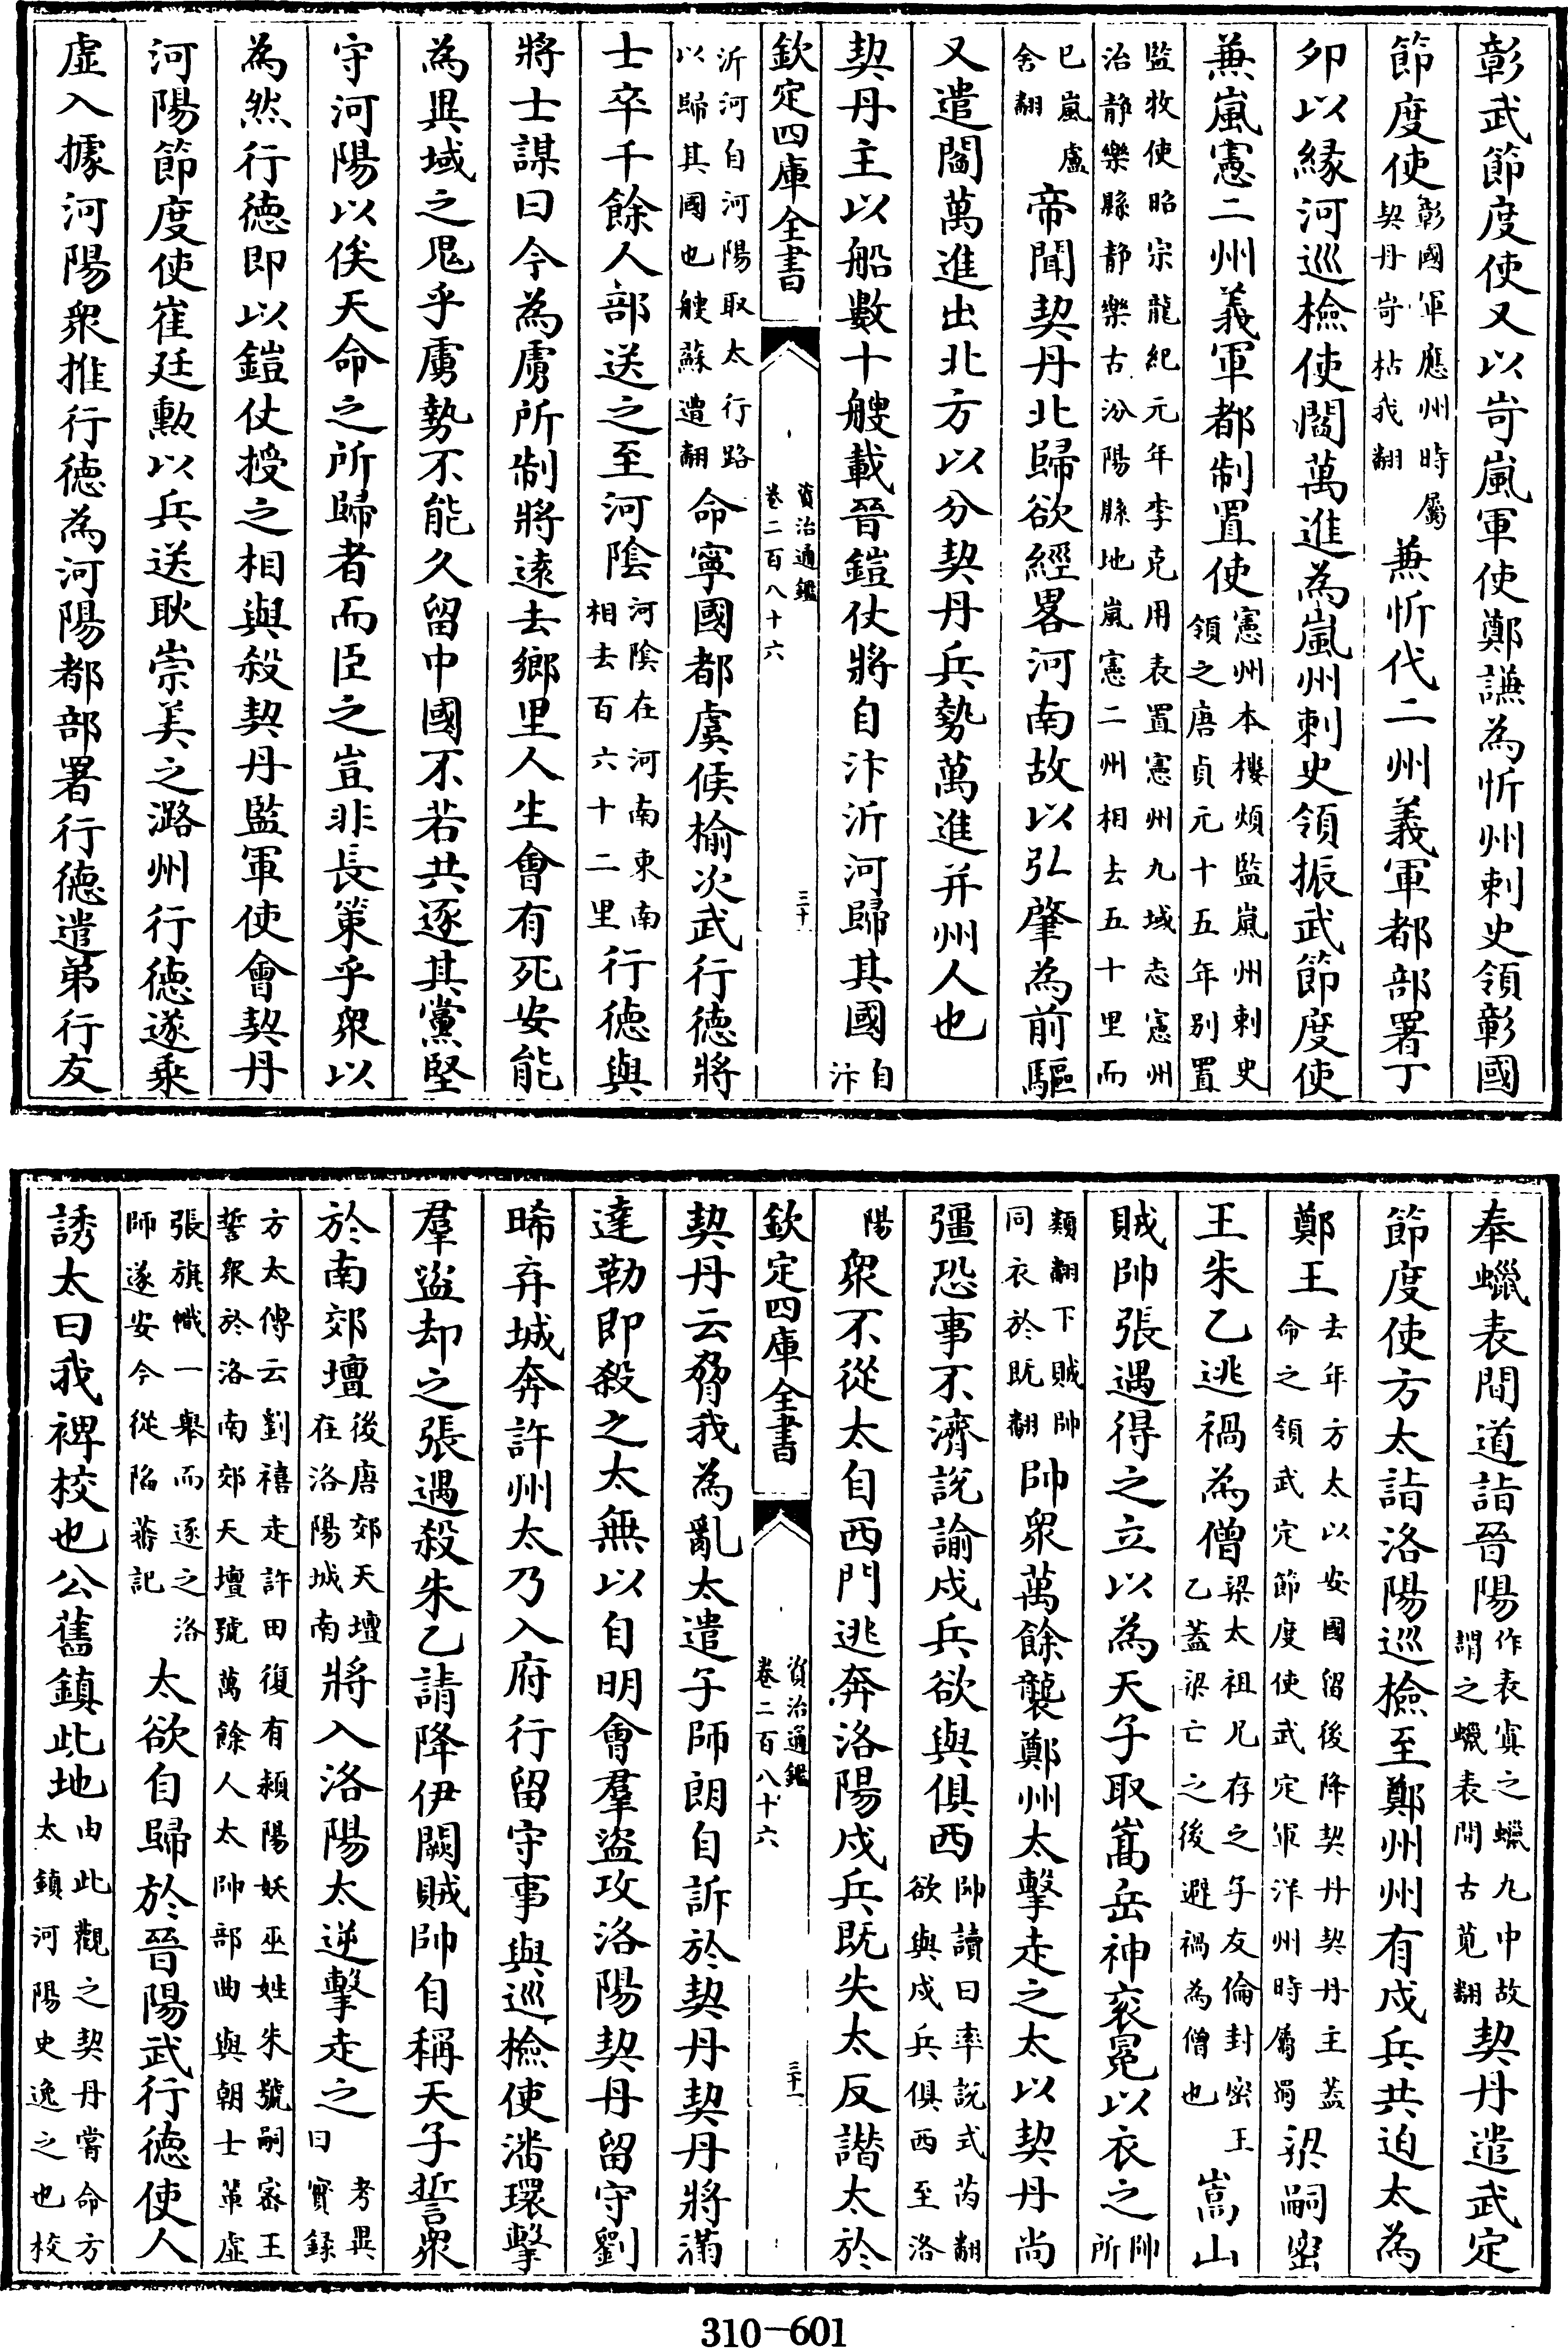 彰武節度使又以岢嵐軍使鄭謙為忻州刺史領彰國
節度使彰國軍應州時屬契丹岢枯我翻兼忻代二州義軍都部署丁
夘以縁河巡檢使閻萬進為嵐州刺史領振武節度使
兼嵐憲二州義軍都制置使憲州本樓煩監嵐州刺史領之唐貞元十五年别置
監牧使昭宗龍紀元年李克用表置憲州九域志憲州治静樂縣静樂古汾陽縣地嵐憲二州相去五十里而
已嵐盧舍翻帝聞契丹北歸欲經畧河南故以弘肇為前驅
又遣閻萬進出北方以分契丹兵勢萬進并州人也
契丹主以船數十艘載晉鎧仗將自汴泝河歸其國自汴
欽定四庫全書
資治通鑑
卷二百八十六
三十
泝河自河陽取太行路以歸其國也艘蘇遭翻命寧國都虞候榆次武行德將
士卒千餘人部送之至河隂河隂在河南東南相去百六十二里行德與
將士謀曰今為虜所制將逺去鄉里人生會有死安能
為異域之鬼乎虜勢不能久留中國不若共逐其黨堅
守河陽以俟天命之所歸者而臣之豈非長策乎衆以
為然行德即以鎧仗授之相與殺契丹監軍使會契丹
河陽節度使崔廷勲以兵送耿崇美之潞州行德遂乘
虚入據河陽衆推行德為河陽都部署行德遣弟行友
奉蠟表間道詣晉陽作表寘之蠟丸中故謂之蠟表間古莧翻契丹遣武定
節度使方太詣洛陽巡檢至鄭州州有戍兵共迫太為
鄭王去年方太以安國留後降契丹契丹主蓋命之領武定節度使武定軍洋州時屬蜀梁嗣密
王朱乙逃禍為僧梁太祖兄存之子友倫封密王乙蓋梁亡之後避禍為僧也嵩山
賊帥張遇得之立以為天子取嵩岳神衮冕以衣之帥所
類翻下賊帥同衣於既翻帥衆萬餘襲鄭州太擊走之太以契丹尚
彊恐事不濟説諭戍兵欲與俱西帥讀曰率説式芮翻欲與戍兵俱西至洛
陽衆不從太自西門逃奔洛陽戍兵既失太反譖太於
欽定四庫全書
資治通鑑
卷二百八十六
三十一
契丹云脅我為亂太遣子師朗自訴於契丹契丹將滿
達勒即殺之太無以自明會羣盗攻洛陽契丹留守劉
晞弃城奔許州太乃入府行留守事與巡檢使潘環擊
羣盗却之張遇殺朱乙請降伊闕賊帥自稱天子誓衆
於南郊壇後唐郊天壇在洛陽城南將入洛陽太逆擊走之考異曰實録
方太傳云劉禧走許田復有潁陽妖巫姓朱號嗣密王誓衆於洛南郊天壇號萬餘人太帥部曲與朝士輩虚
張旗幟一舉而逐之洛師遂安今從陷蕃記太欲自歸於晉陽武行德使人
誘太曰我禆校也公舊鎮此地由此觀之契丹嘗命方太鎮河陽史逸之也校
310—601